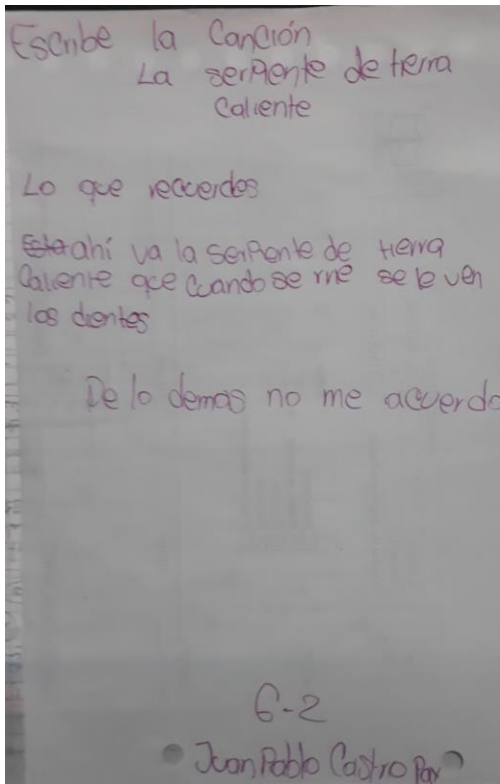 Escribe la Canción
La serpiente de tierra
Caliente
Lo que recuerdes
ahí va la serpiente de tierra
Caliente que cuando se rie se le ven
los dientes
De lo demas no me acuerdo
6-2
Juan Pablo Castro